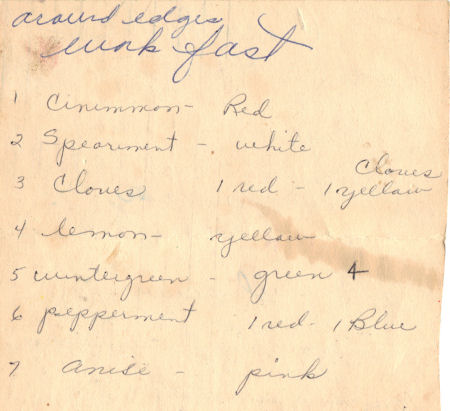 around edges
work fast
1 Cinimmon - Red
2 Spearment - white
Cloves
3 Cloves 1 red - 1 yellow
4 lemon - yellow
5 wintergreen - green 4
6 pepperment 1 red - 1 Blue
7 anise - pink